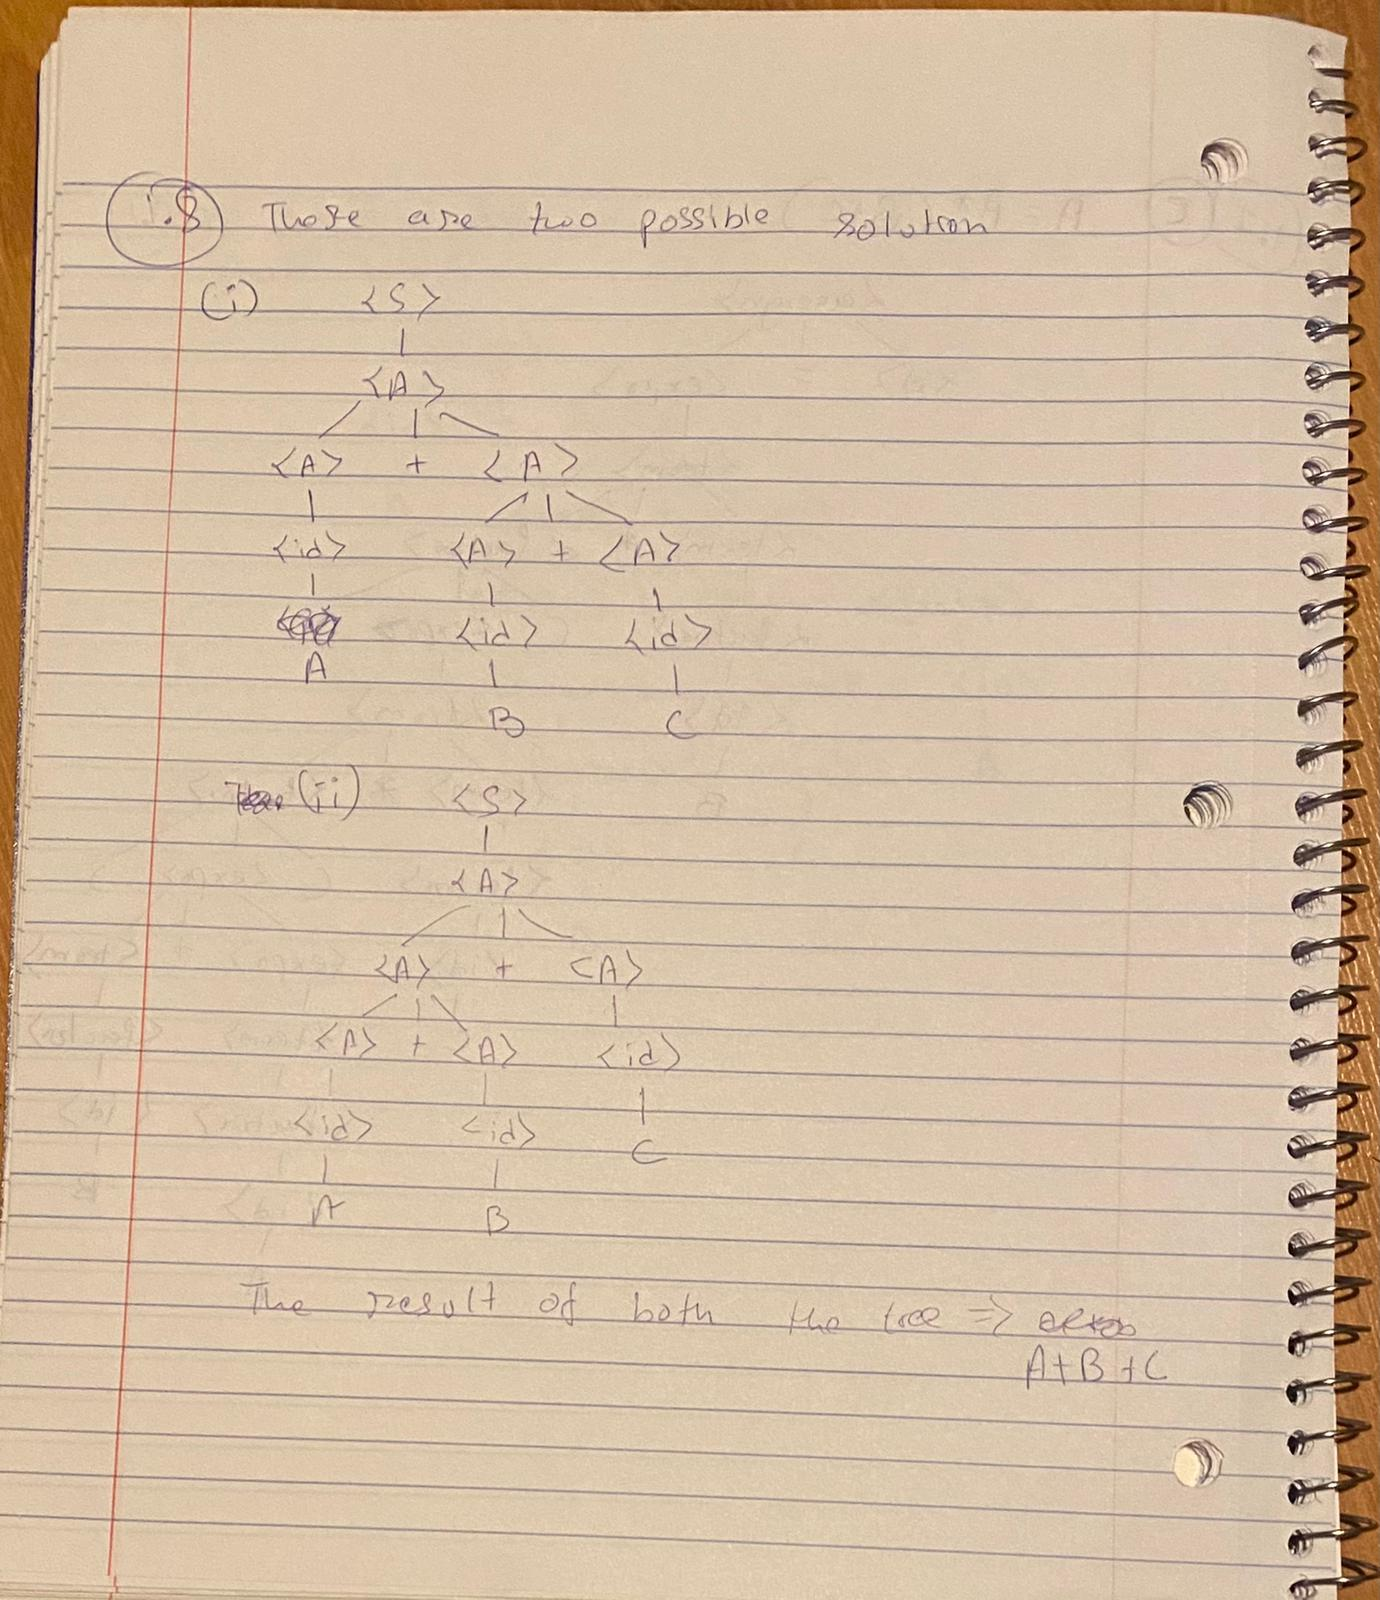 1.8 There are two possible solution
(i) <S>
<A>
<A> + <A>
<id> <A> + <A>
<id> <id>
A
B C
(ii) <S>
<A>
<A> + <A>
<A> + <A> <id>
<id> <id> C
A B
The result of both the tree =>
A+B+C